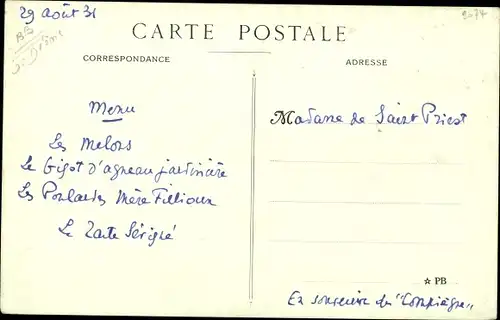 29 Août 31
CARTE POSTALE
CORRESPONDANCE
ADRESSE
Menu
Les Melons
Le Gigot d'agneau jardinière
Les Poulardes Mère Fillioux
La Tarte Sévigné
Madame de Saint Priest
☆ PB
En souvenir du "Compiègne"